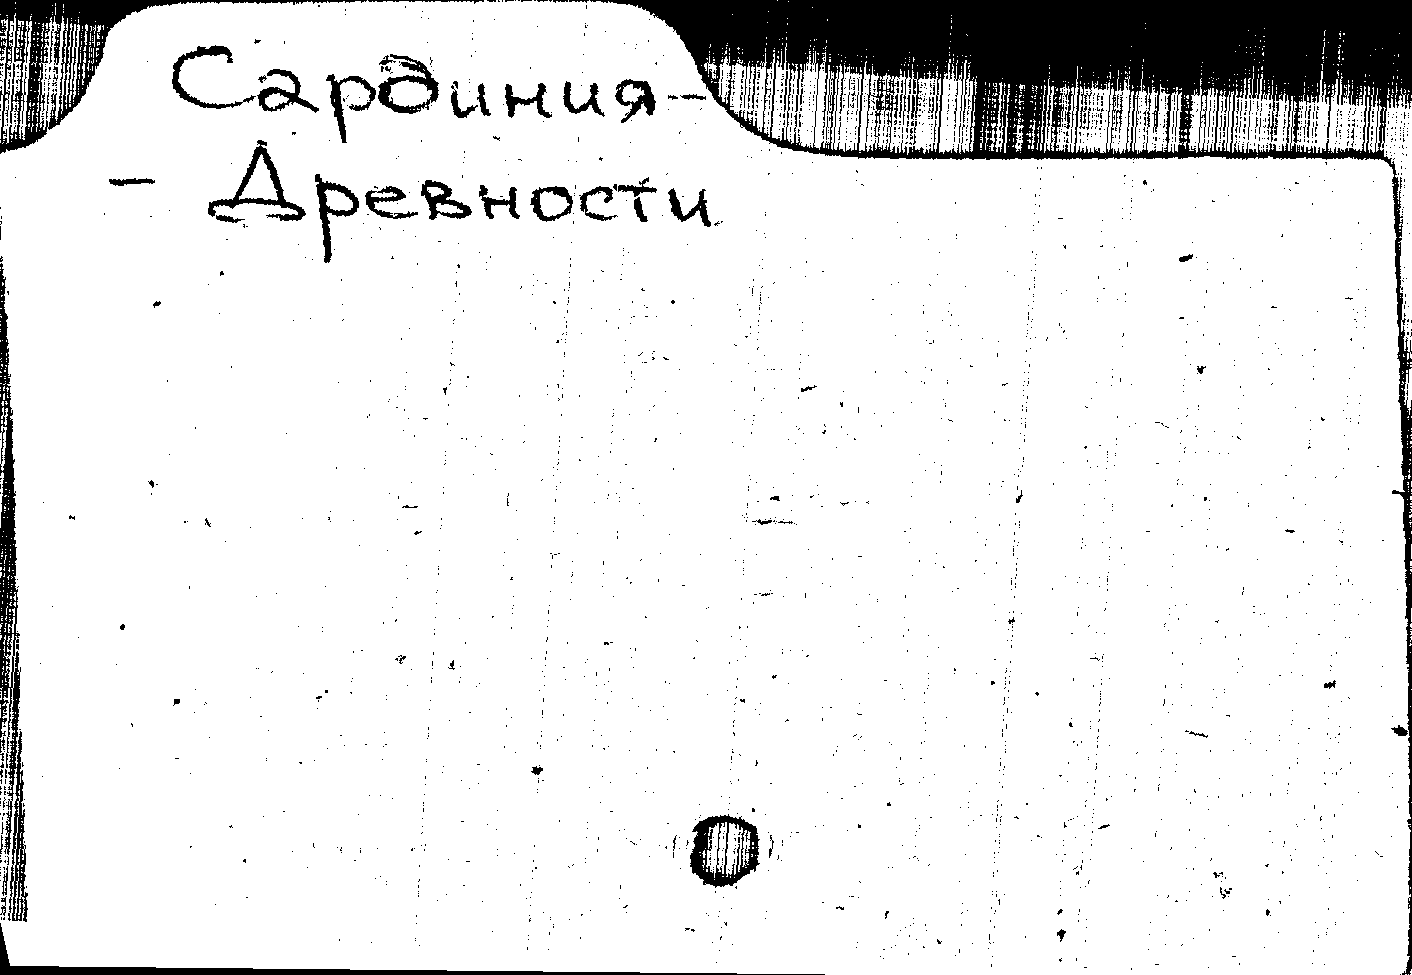 Сардиния-
- Древности